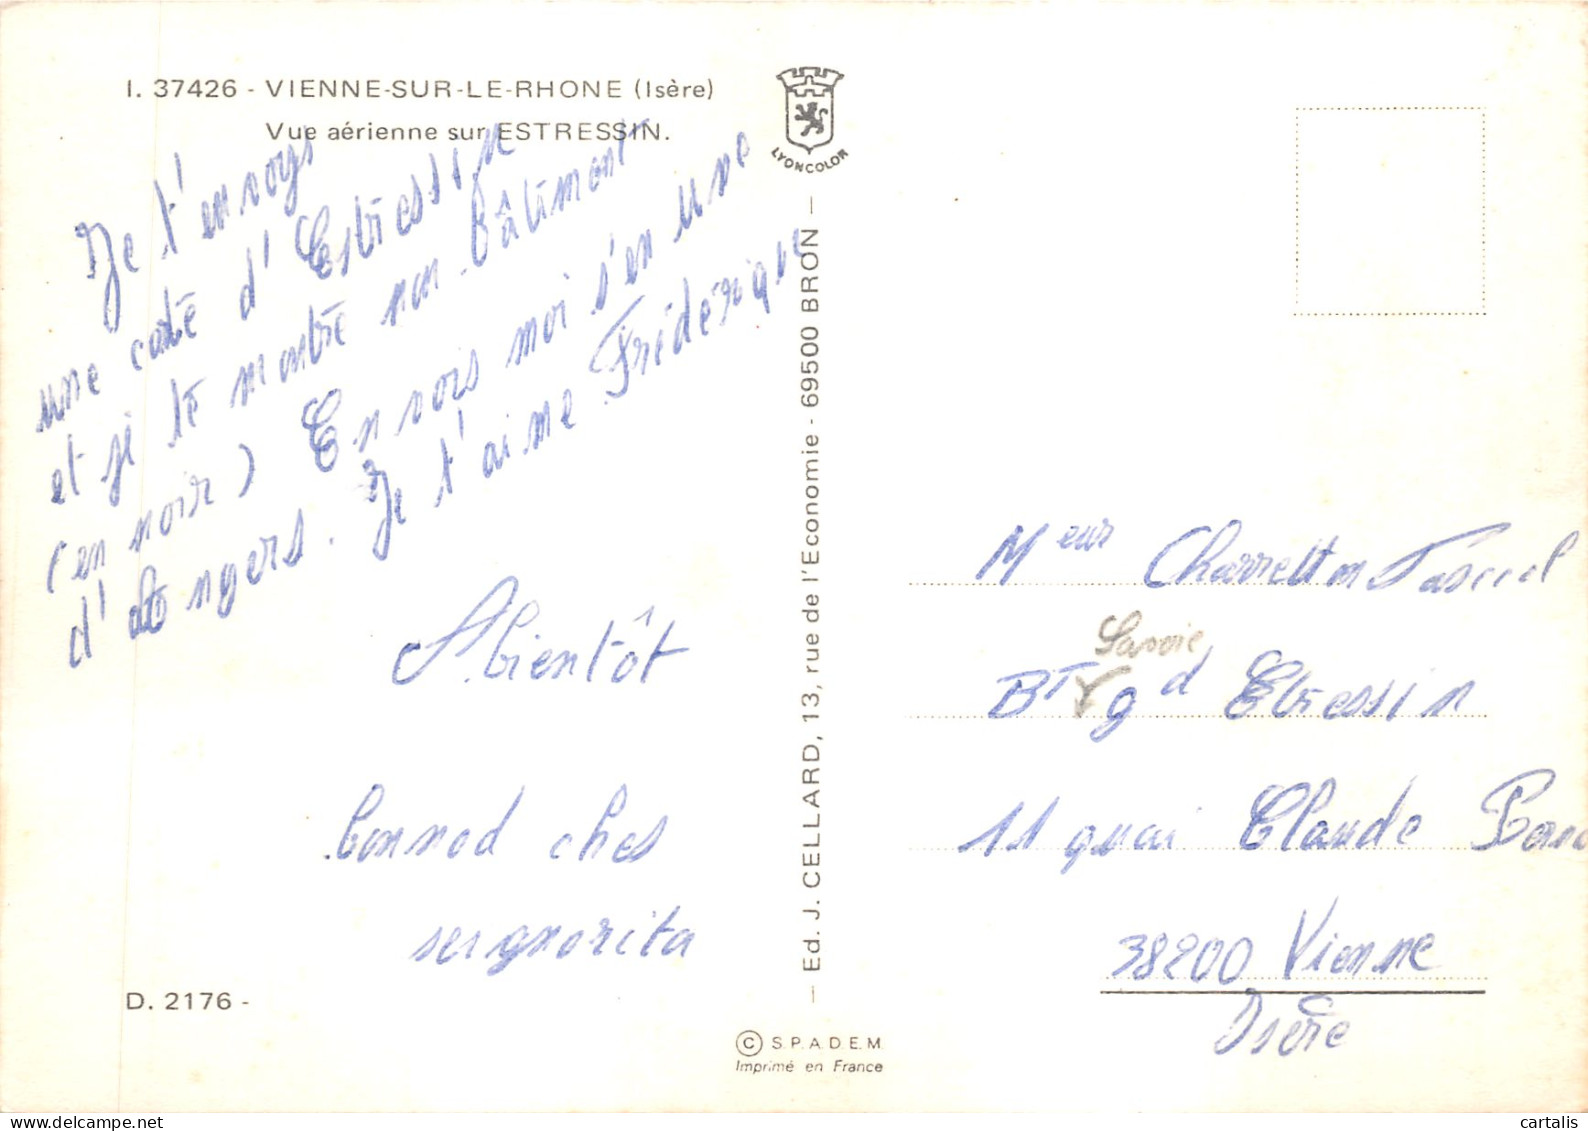 I. 37426 - VIENNE-SUR-LE-RHONE (Isère)
Vue aérienne sur ESTRESSIN.
Je t'envoys
une caté d'Estressin
et je te montre mon bâtiment
(en noir) Envois moi s'en une
d'Angers. Je t'aime Frédérique
A bientôt
ches
seignorita
D. 2176 -
LYONCOLOR
Ed. J. CELLARD, 13, rue de l'Economie - 69500 BRON
© S.P.A.D.E.M.
Imprimé en France
Meur Charretton Pascal
Savoie
BT gd Estressin
11 quai Claude
38200 Vienne
Isère
cartalis